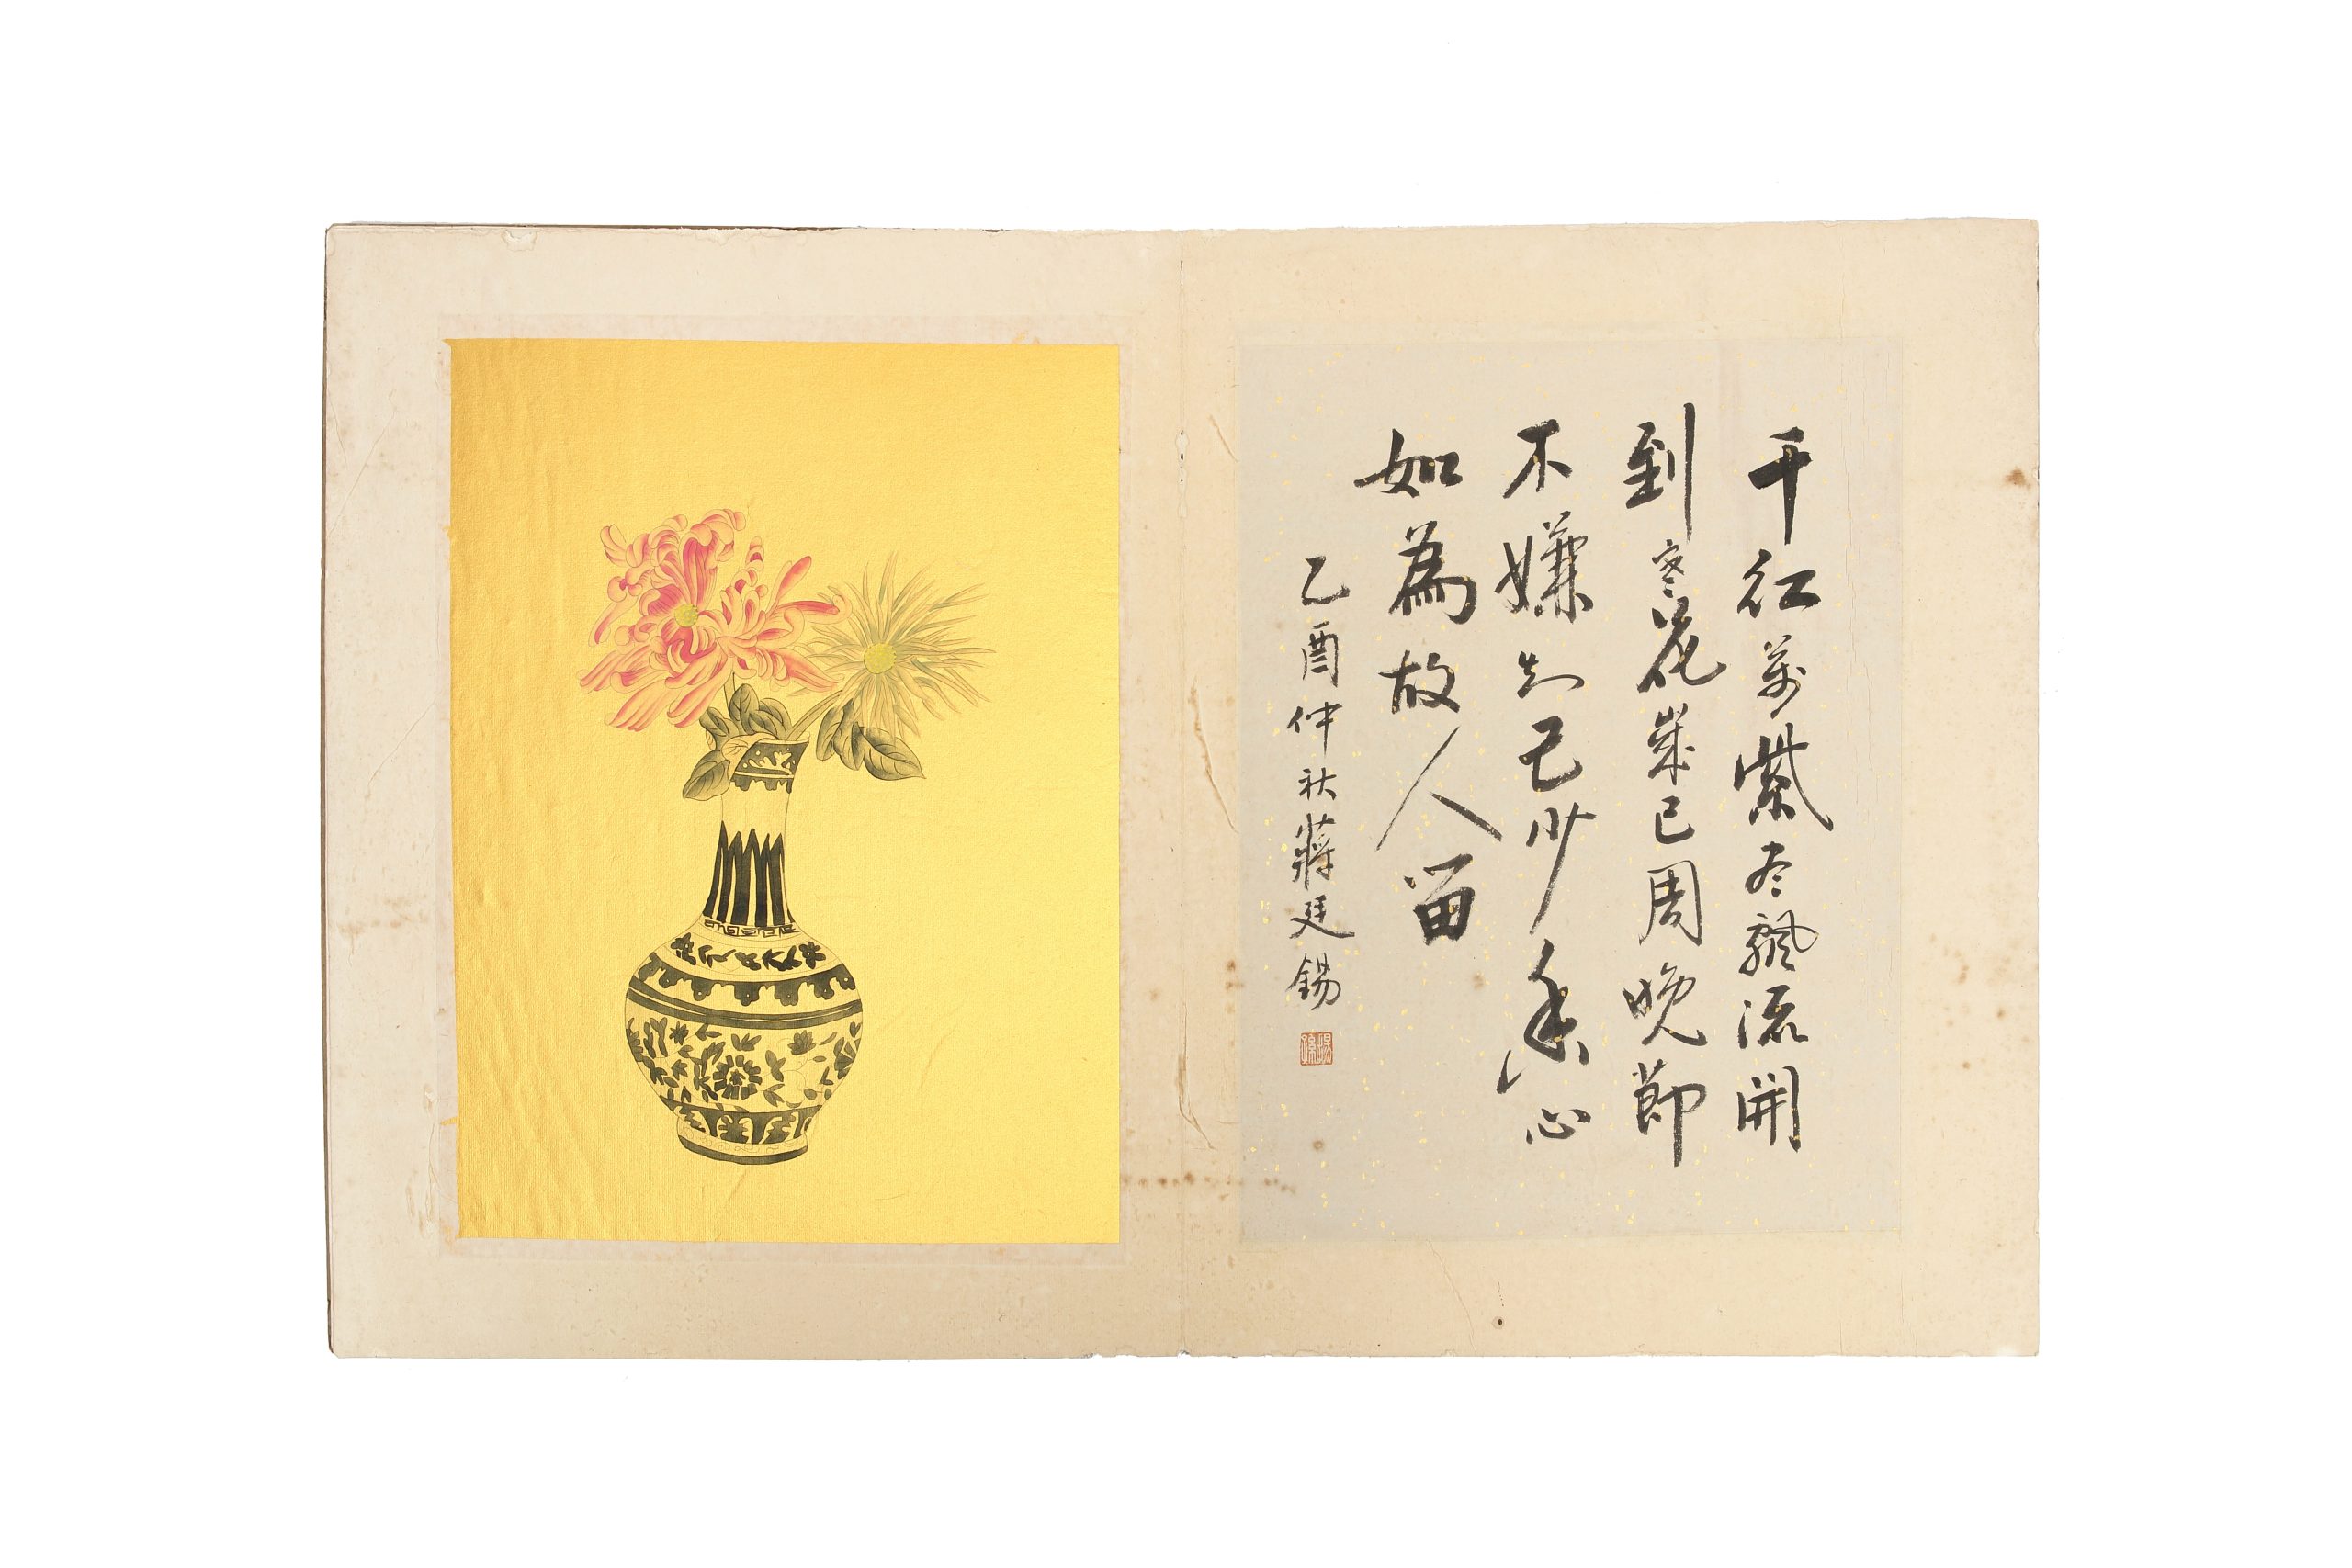 千红萬紫尽飄流開
到寒花歲已周晚節
不嫌知己少香心
如為故人留
乙酉仲秋蔣廷錫